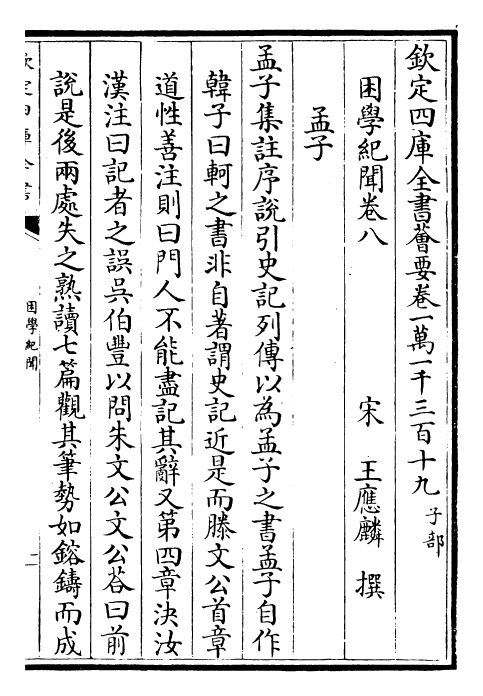 欽定四庫全書薈要卷一萬一千三百十九 子部
困學紀聞卷八 宋 王應麟 撰
孟子
孟子集註序說引史記列傳以為孟子之書孟子自作
韓子曰軻之書非自著謂史記近是而滕文公首章
道性善注則曰門人不能盡記其辭又第四章決汝
漢注曰記者之誤吳伯豐以問朱文公文公荅曰前
說是後兩處失之熟讀七篇觀其筆勢如鎔鑄而成
欽定四庫全書
困學紀聞